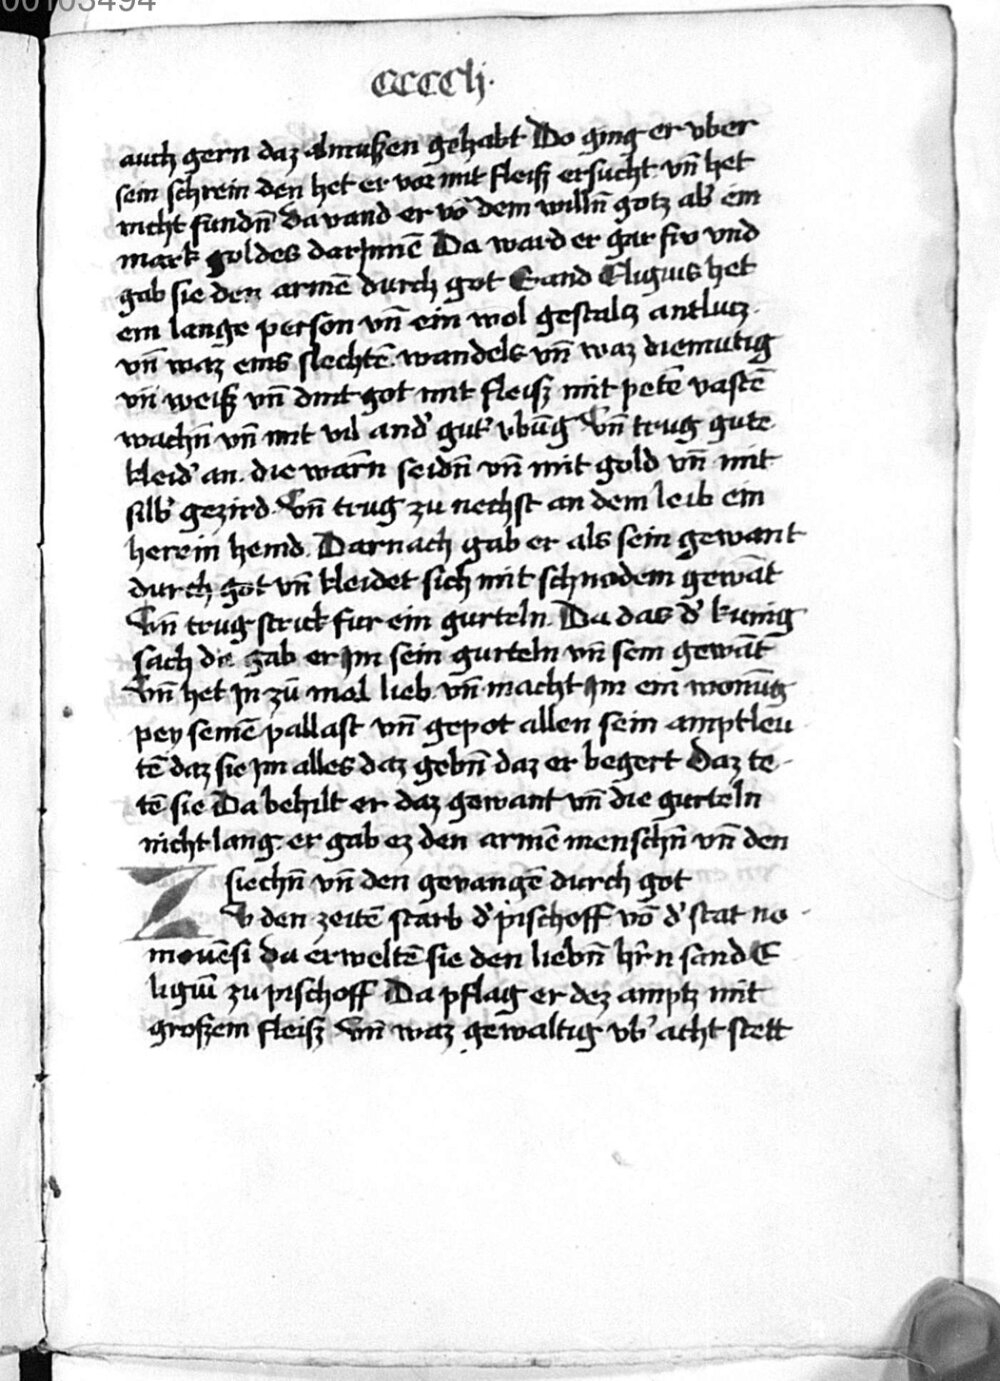 00103494
CCCCli.
auch gern daz almußen gehabt Do ging er vber
sein schrein den het er vor mit fleiß ersucht vn̄ het
nicht fundn̄ da vand er vō dem willn̄ gotz ab' ein
mark goldes darInnē Da ward er gar fro vnd
gab sie den armē durch got Sand Eligius het
ein lange person vn̄ ein wol gestaltz antlutz.
vn̄ waz eins slechtē wandels vn̄ waz diemutig
vn̄ weiß vn̄ dint got mit fleiß mit petē vastē
wachn̄ vn̄ mit vil and' gut' vbūg Vn̄ trug gute
kleid' an. die warn̄ seidn̄ vn̄ mit gold vn̄ mit
silb' gezird. Vn̄ trug zu nechst an dem leib ein
herein hemd. Darnach gab er als sein gewant
durch got vn̄ kleidet sich mit schnodem gewāt
Vn̄ trug strick fur ein gurteln. Da das d' kunig
sach do gab er Im sein gurteln vn̄ sein gewāt
Vn̄ het In zū mol lieb vn̄ macht Im ein wonūg
pey seinē pallast vn̄ gepot allen sein amptleu
tē daz sie Im alles daz gebn̄ daz er begert Daz te-
tē sie Da behilt er daz gewant vn̄ die gurteln
nicht lang. er gab ez den armē menschn̄ vn̄ den
siechn̄ vn̄ den gevangē durch got
Zv den zeitē starb d' pischoff vō d' stat no-
mouēsi da erweltē sie den liebn̄ hr̄n sand E
ligiū zu pischoff Da pflag er dez amptz mit
großem fleiß Vn̄ waz gewaltig vb' acht stett